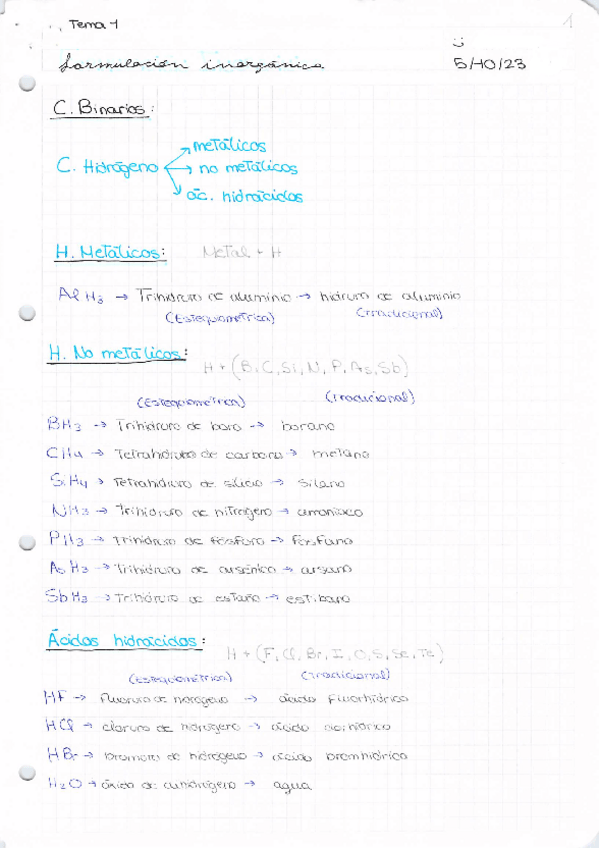 Tema 1
1
formulación inorgánica 5/10/23
C. Binarios:
C. Hidrógeno
metálicos
no metálicos
ác. hidrácidos
H. Metálicos: Metal + H
AlH3 → Trihidruro de aluminio → hidruro de aluminio
(Estequiométrica) (Tradicional)
H. No metálicos: H + (B, C, Si, N, P, As, Sb)
(Estequiométrica) (Tradicional)
BH3 → Trihidruro de boro → borano
CH4 → Tetrahidruro de carbono → metano
SiH4 → Tetrahidruro de silicio → Silano
NH3 → trihidruro de nitrógeno → amoniaco
PH3 → trihidruro de fósforo → fosfano
AsH3 → Trihidruro de arsénico → arsano
SbH3 → Trihidruro de estaño → estibano
Ácidos hidrácidos: H + (F, Cl, Br, I, O, S, Se, Te)
(Estequiométrica) (Tradicional)
HF → fluoruro de hidrógeno → ácido fluorhídrico
HCl → cloruro de hidrógeno → ácido clorhídrico
HBr → bromuro de hidrógeno → ácido bromhídrico
H2O → óxido de dihidrógeno → agua